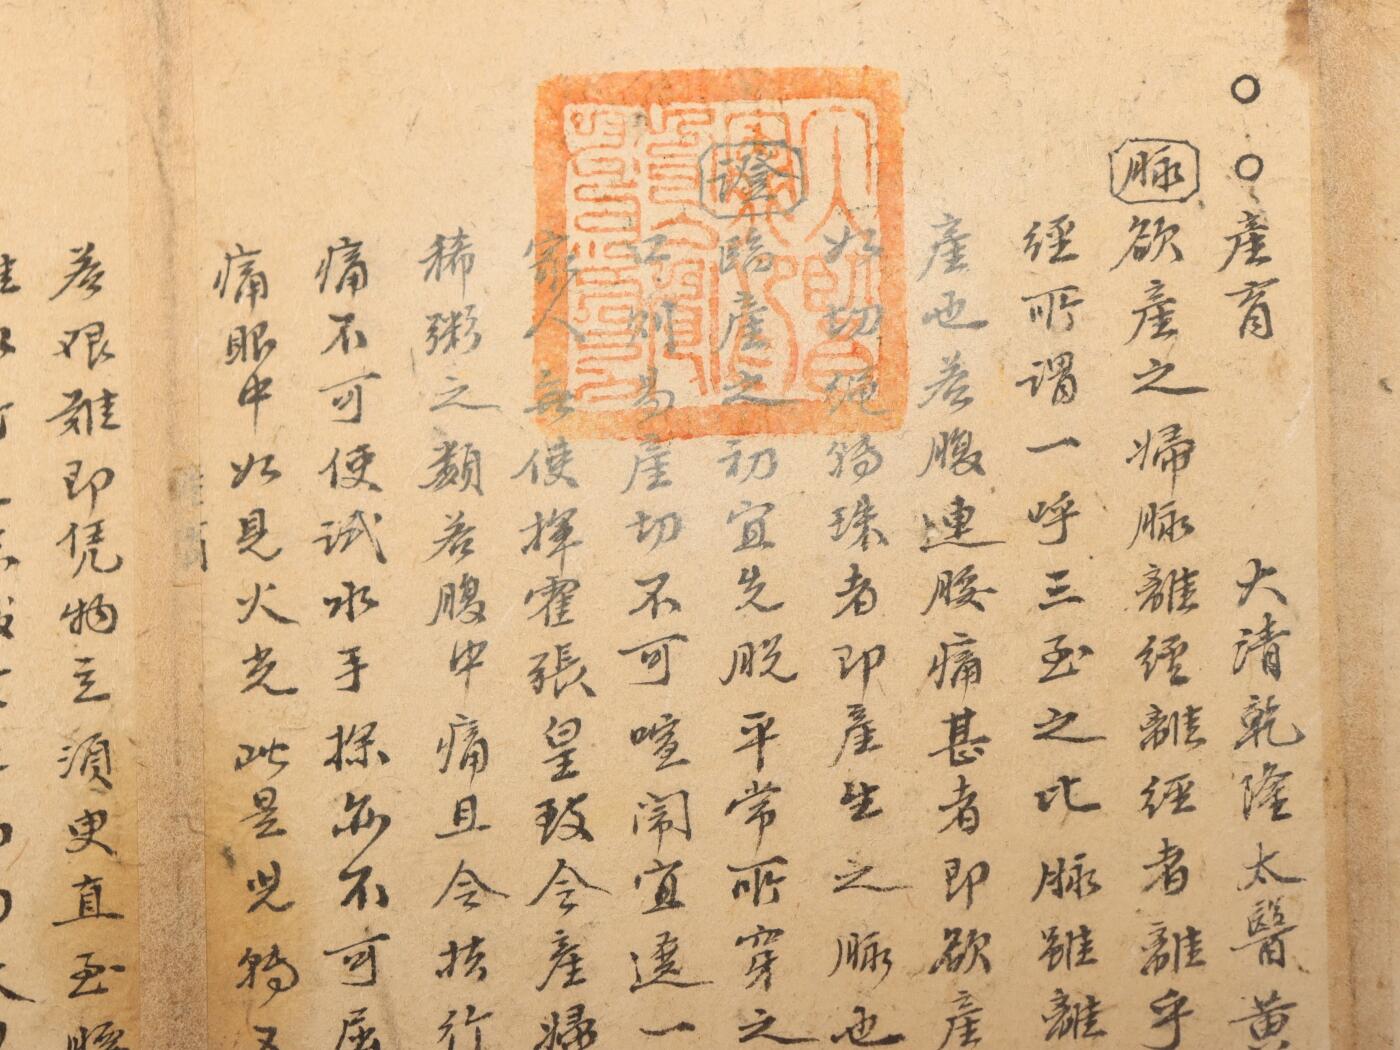 ○○產育 大清乾隆太醫黃
脉欲產之婦脉離經離經者離乎
經所謂一呼三至之比脉雖離
產也若腹連腰痛甚者即欲產
如切绳轉珠者即產生之脉也
證臨產之初宜先脱平常所穿之
則易產切不可喧鬧宜選一
家人無使揮霍張皇致令產婦
稀粥之類若腹中痛且令扶行
痛不可使試水手探亦不可屈
痛眼中如見火光此是児轉又
若艰難即凭物立須臾直至腰